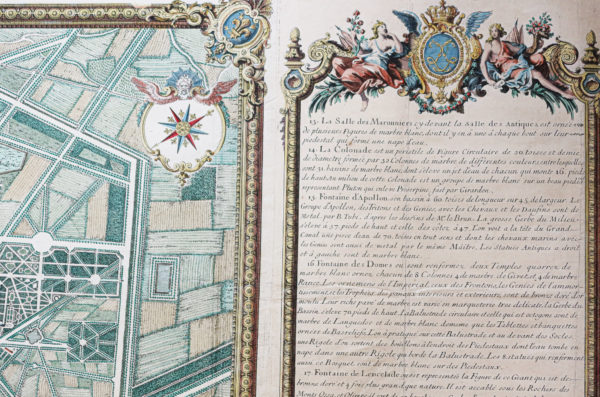 13. La Salle des Maronniers cy devant la Salle des Antiques, est ornée
de plusieurs Figures de marbre blanc, dont il y en a une à chaque bout sur leur
piedestal qui forme une nape d'eau.
14. La Colonade est un peristile de Figure Circulaire de
de diametre formée par 32 Colonnes de marbre de differentes couleurs, entre lesquelles
sont 31 bassins de marbre blanc, dont s'éleve un jet d'eau de chacun qui monte
pieds de haut, au milieu de cette Colonade est un groupe de marbre blanc sur un beau piedestal
representant Pluton qui enleve Proserpine, fait par Girardon.
15. Fontaine d'Apollon, son bassin a 60 toises de longueur sur 45. de largeur. Le
Groupe d'Apollon, des Tritons et des Genies, avec les Chevaux et les Dauphins sont de
Metal, par B. Tubi, d'après les desseins de Mr. le Brun. La grosse Gerbe du Milieu
s'éleve à 57 pieds de haut et celle des côtez à 47. L'on voit à la tête du Grand
Canal une piece d'eau de 70. toises en tout sens et dont les chevaux marins avec
les Genies sont aussi de metal par le même Maître. Les Statues Antiques a droit
et à gauche sont de marbre blanc.
16. Fontaine des Domes ou sont renfermez deux Temples quarrez de
marbre blanc ornez chacun de 8 Colonnes 4 de marbre de Givet, et 4 de marbre
Rance. Les ornemens de l'Imperial, ceux des Frontons, les Genies de l'amor-
tissement, et les Trophées des panaux interieurs et exterieurs, sont de bronze doré
moulu. Leur riche pavé de marbre est rangé en marqueterie des plus delicate, la Gerbe du
Bassin s'éleve 70 pieds de haut. La Balustrade circulaire et celle qui est octogone sont de
marbre de Languedoc et de marbre blanc de meme que les Tablettes et banquettes
ornées de Basreliefs. L'on a pratiqué sur cette Balustrade et au devant des Socles,
une Rigole d'ou sortent des bouillons d'eau des Piedestaux dont l'eau tombe en
nape dans une autre Rigole qui borde la Balustrade. Les 8 statues qui renferment
aussi ce Bosquet sont de marbre blanc sur des Piedestaux.
17. Fontaine de Lencelade ou est representé la Figure de ce Geant qui est de
bronze doré et 4 fois plus grand que nature. Il est accablé sous les Rochers des
Monts Ossa et Olimpe